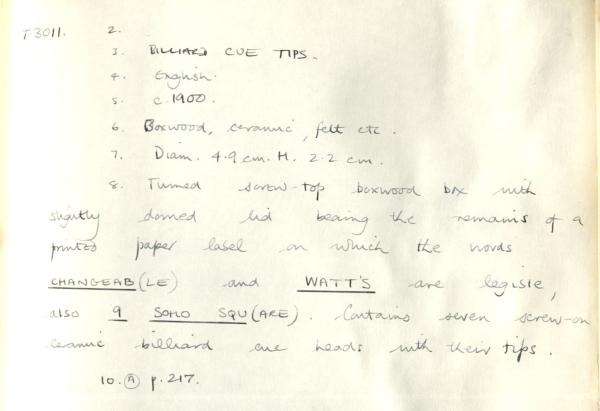 T.3011. 2.
3. BILLIARD CUE TIPS.
4. English.
5. c.1900.
6. Boxwood, ceramic, felt etc.
7. Diam. 4.9 cm. H. 2.2 cm.
8. Turned screw-top boxwood box with
slightly domed lid bearing the remains of a
printed paper label on which the words
CHANGEAB(LE) and WATT'S are legible,
also 9 SOHO SQU(ARE). Contains seven screw-on
ceramic billiard cue heads with their tips.
10. A p.217.